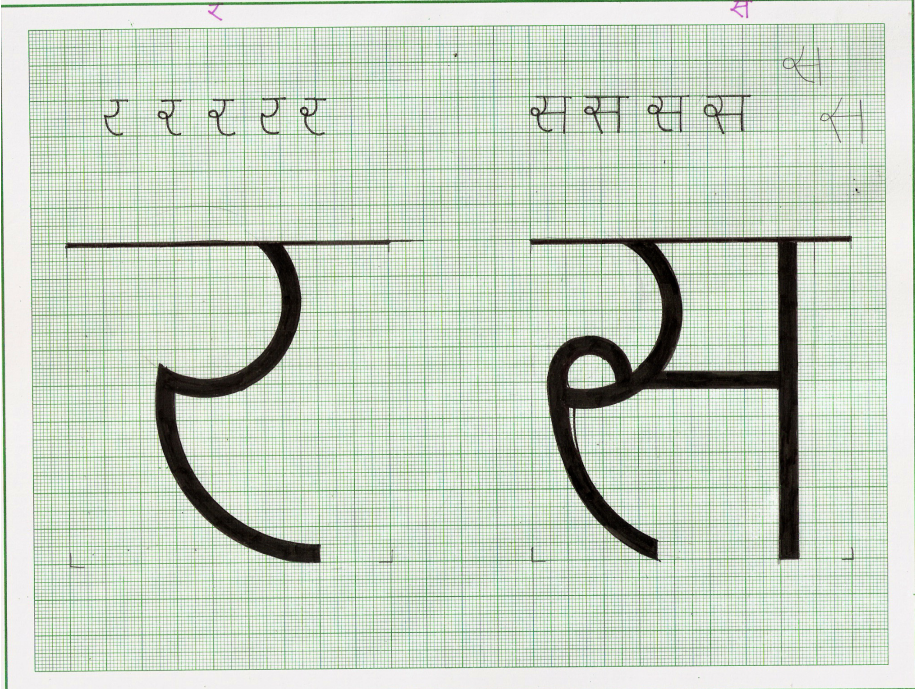 र स
स
र र र र र स स स स
स
र स